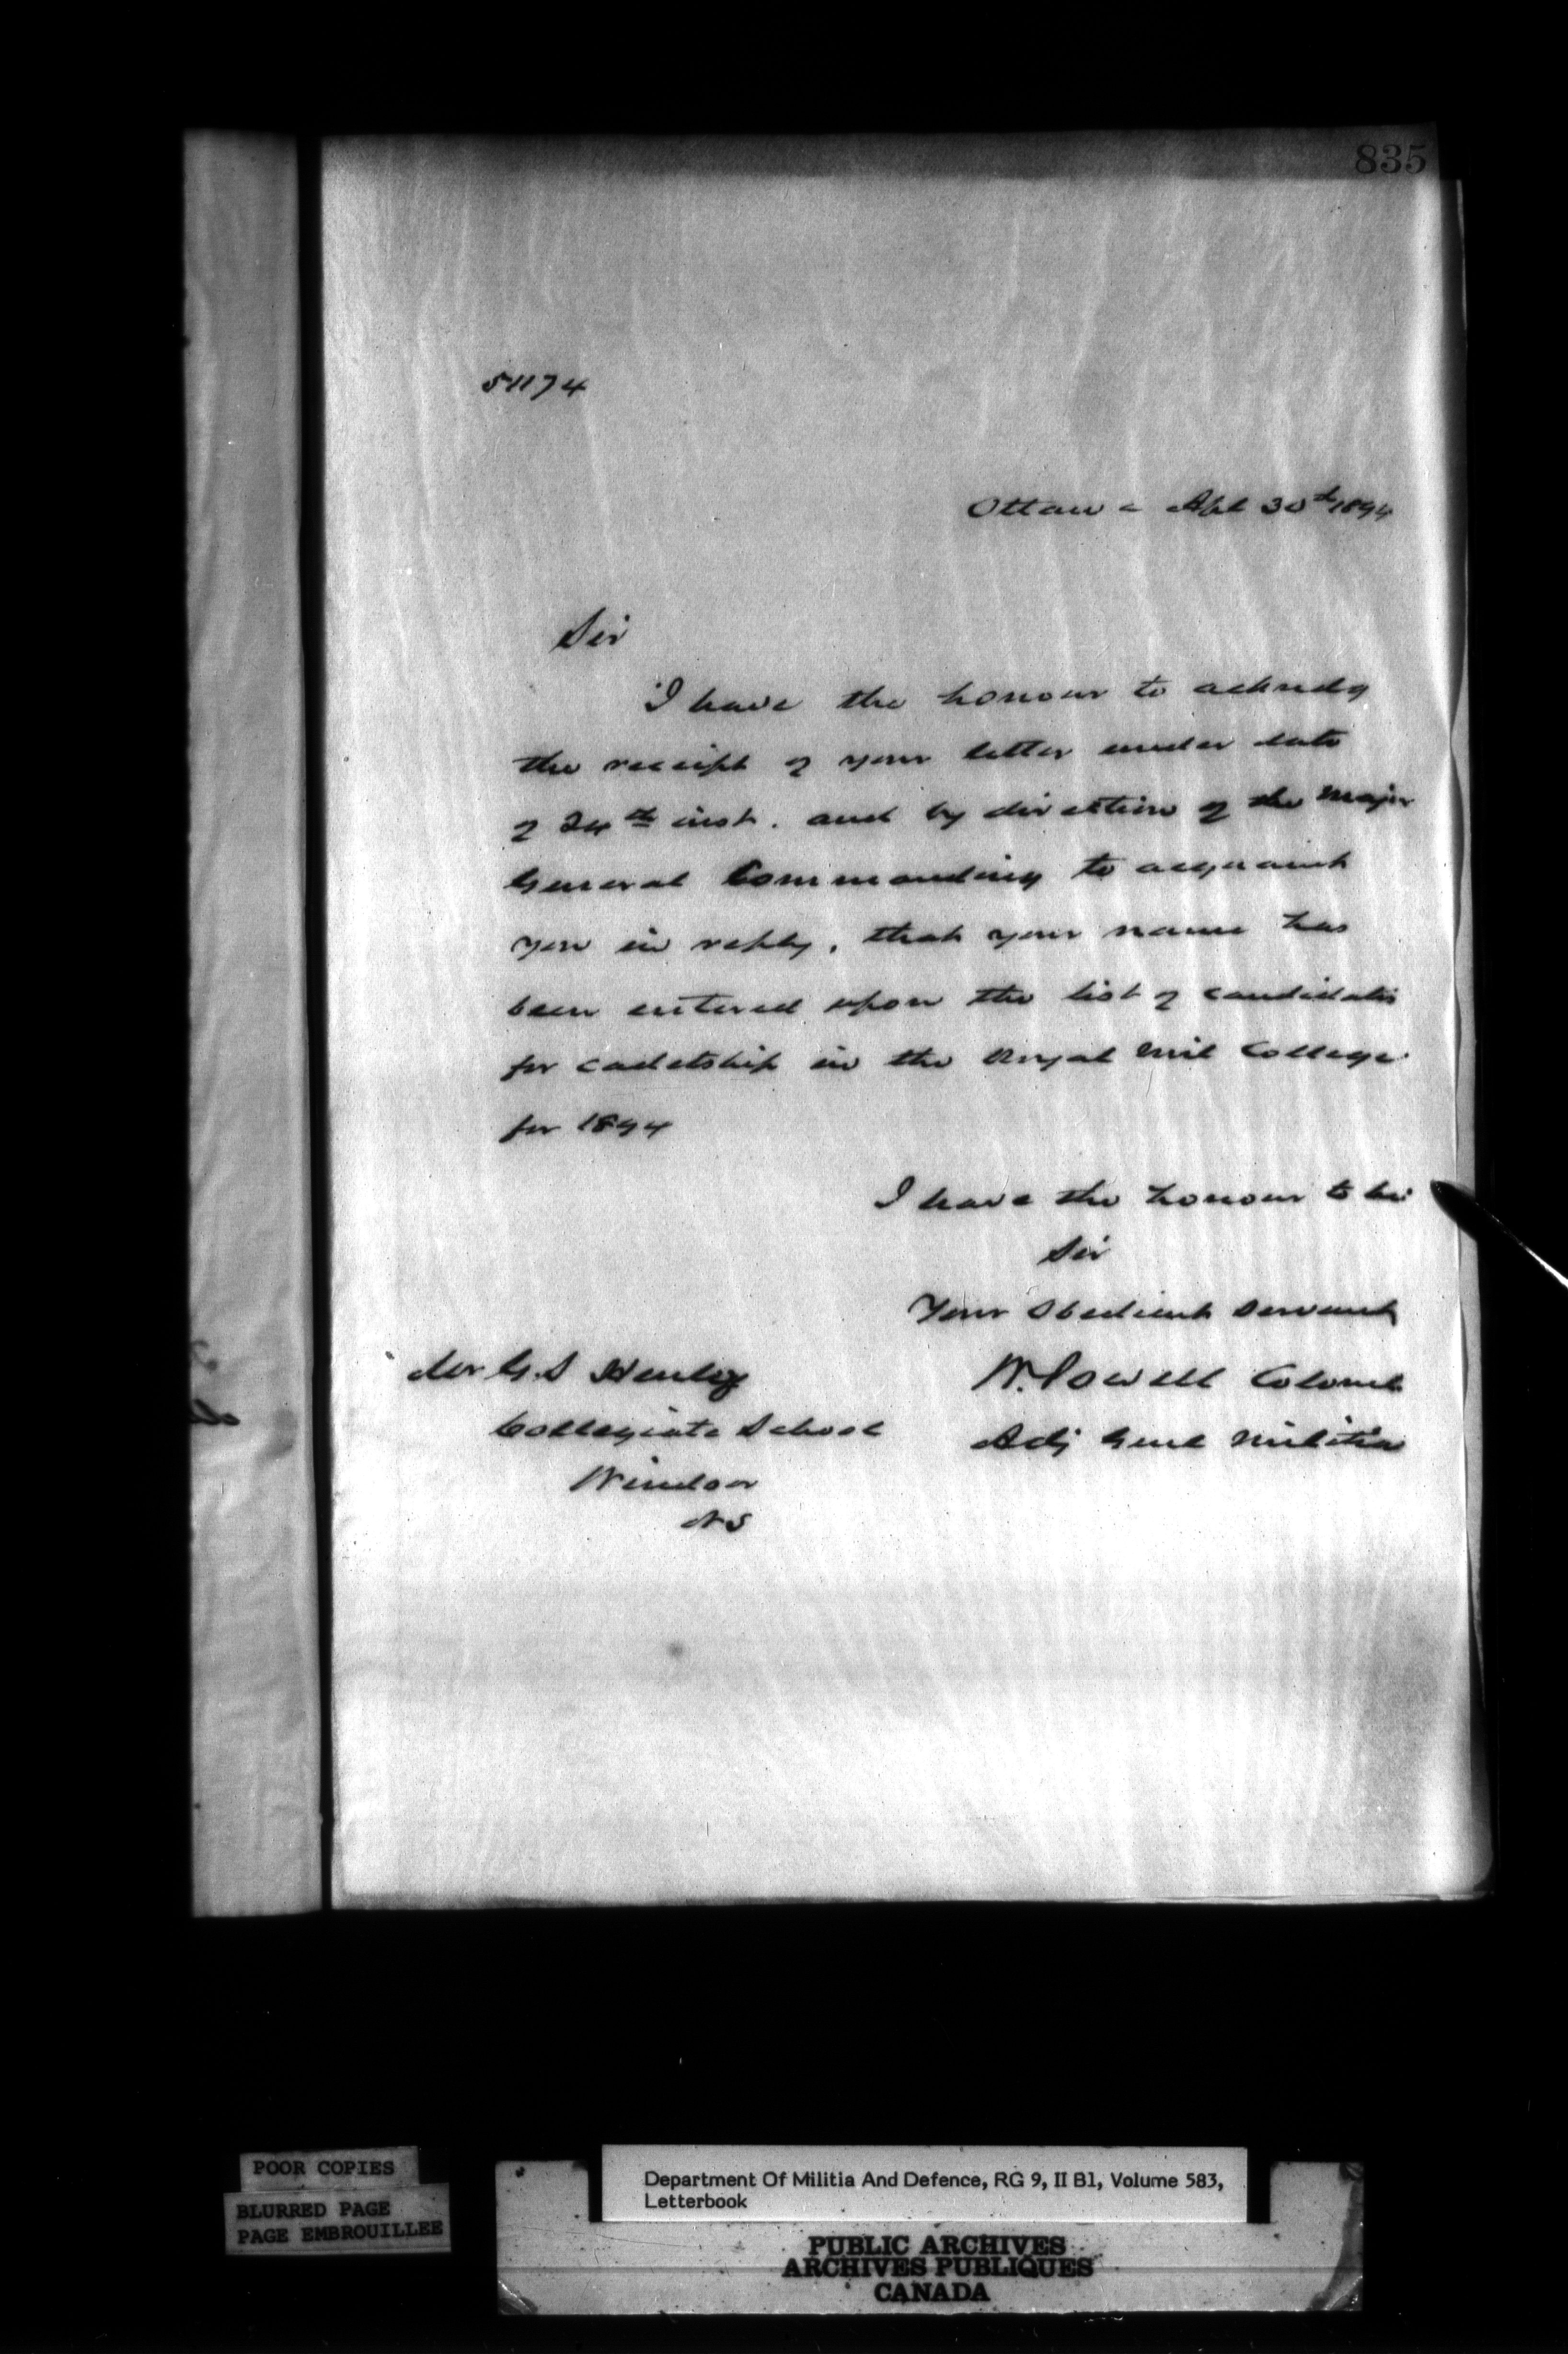 835
51174
Ottawa Apl 30th 1894
Sir
I have the honour to acknedg
the receipt of your letter under date
of 24th inst. and by direction of the Major
General Commanding to acquaint
you in reply, that your name has
been entered upon the list of candidates
for cadetship in the Royal Mil College
for 1894
I have the honour to be
Sir
Your Obedient Servant
W. Powell Colonel
Adj Genl Militia
Mr G. S Henley
Collegiate School
Windsor
NS
POOR COPIES
BLURRED PAGE
PAGE EMBROUILLEE
Department Of Militia And Defence, RG 9, II B1, Volume 583,
Letterbook
PUBLIC ARCHIVES
ARCHIVES PUBLIQUES
CANADA